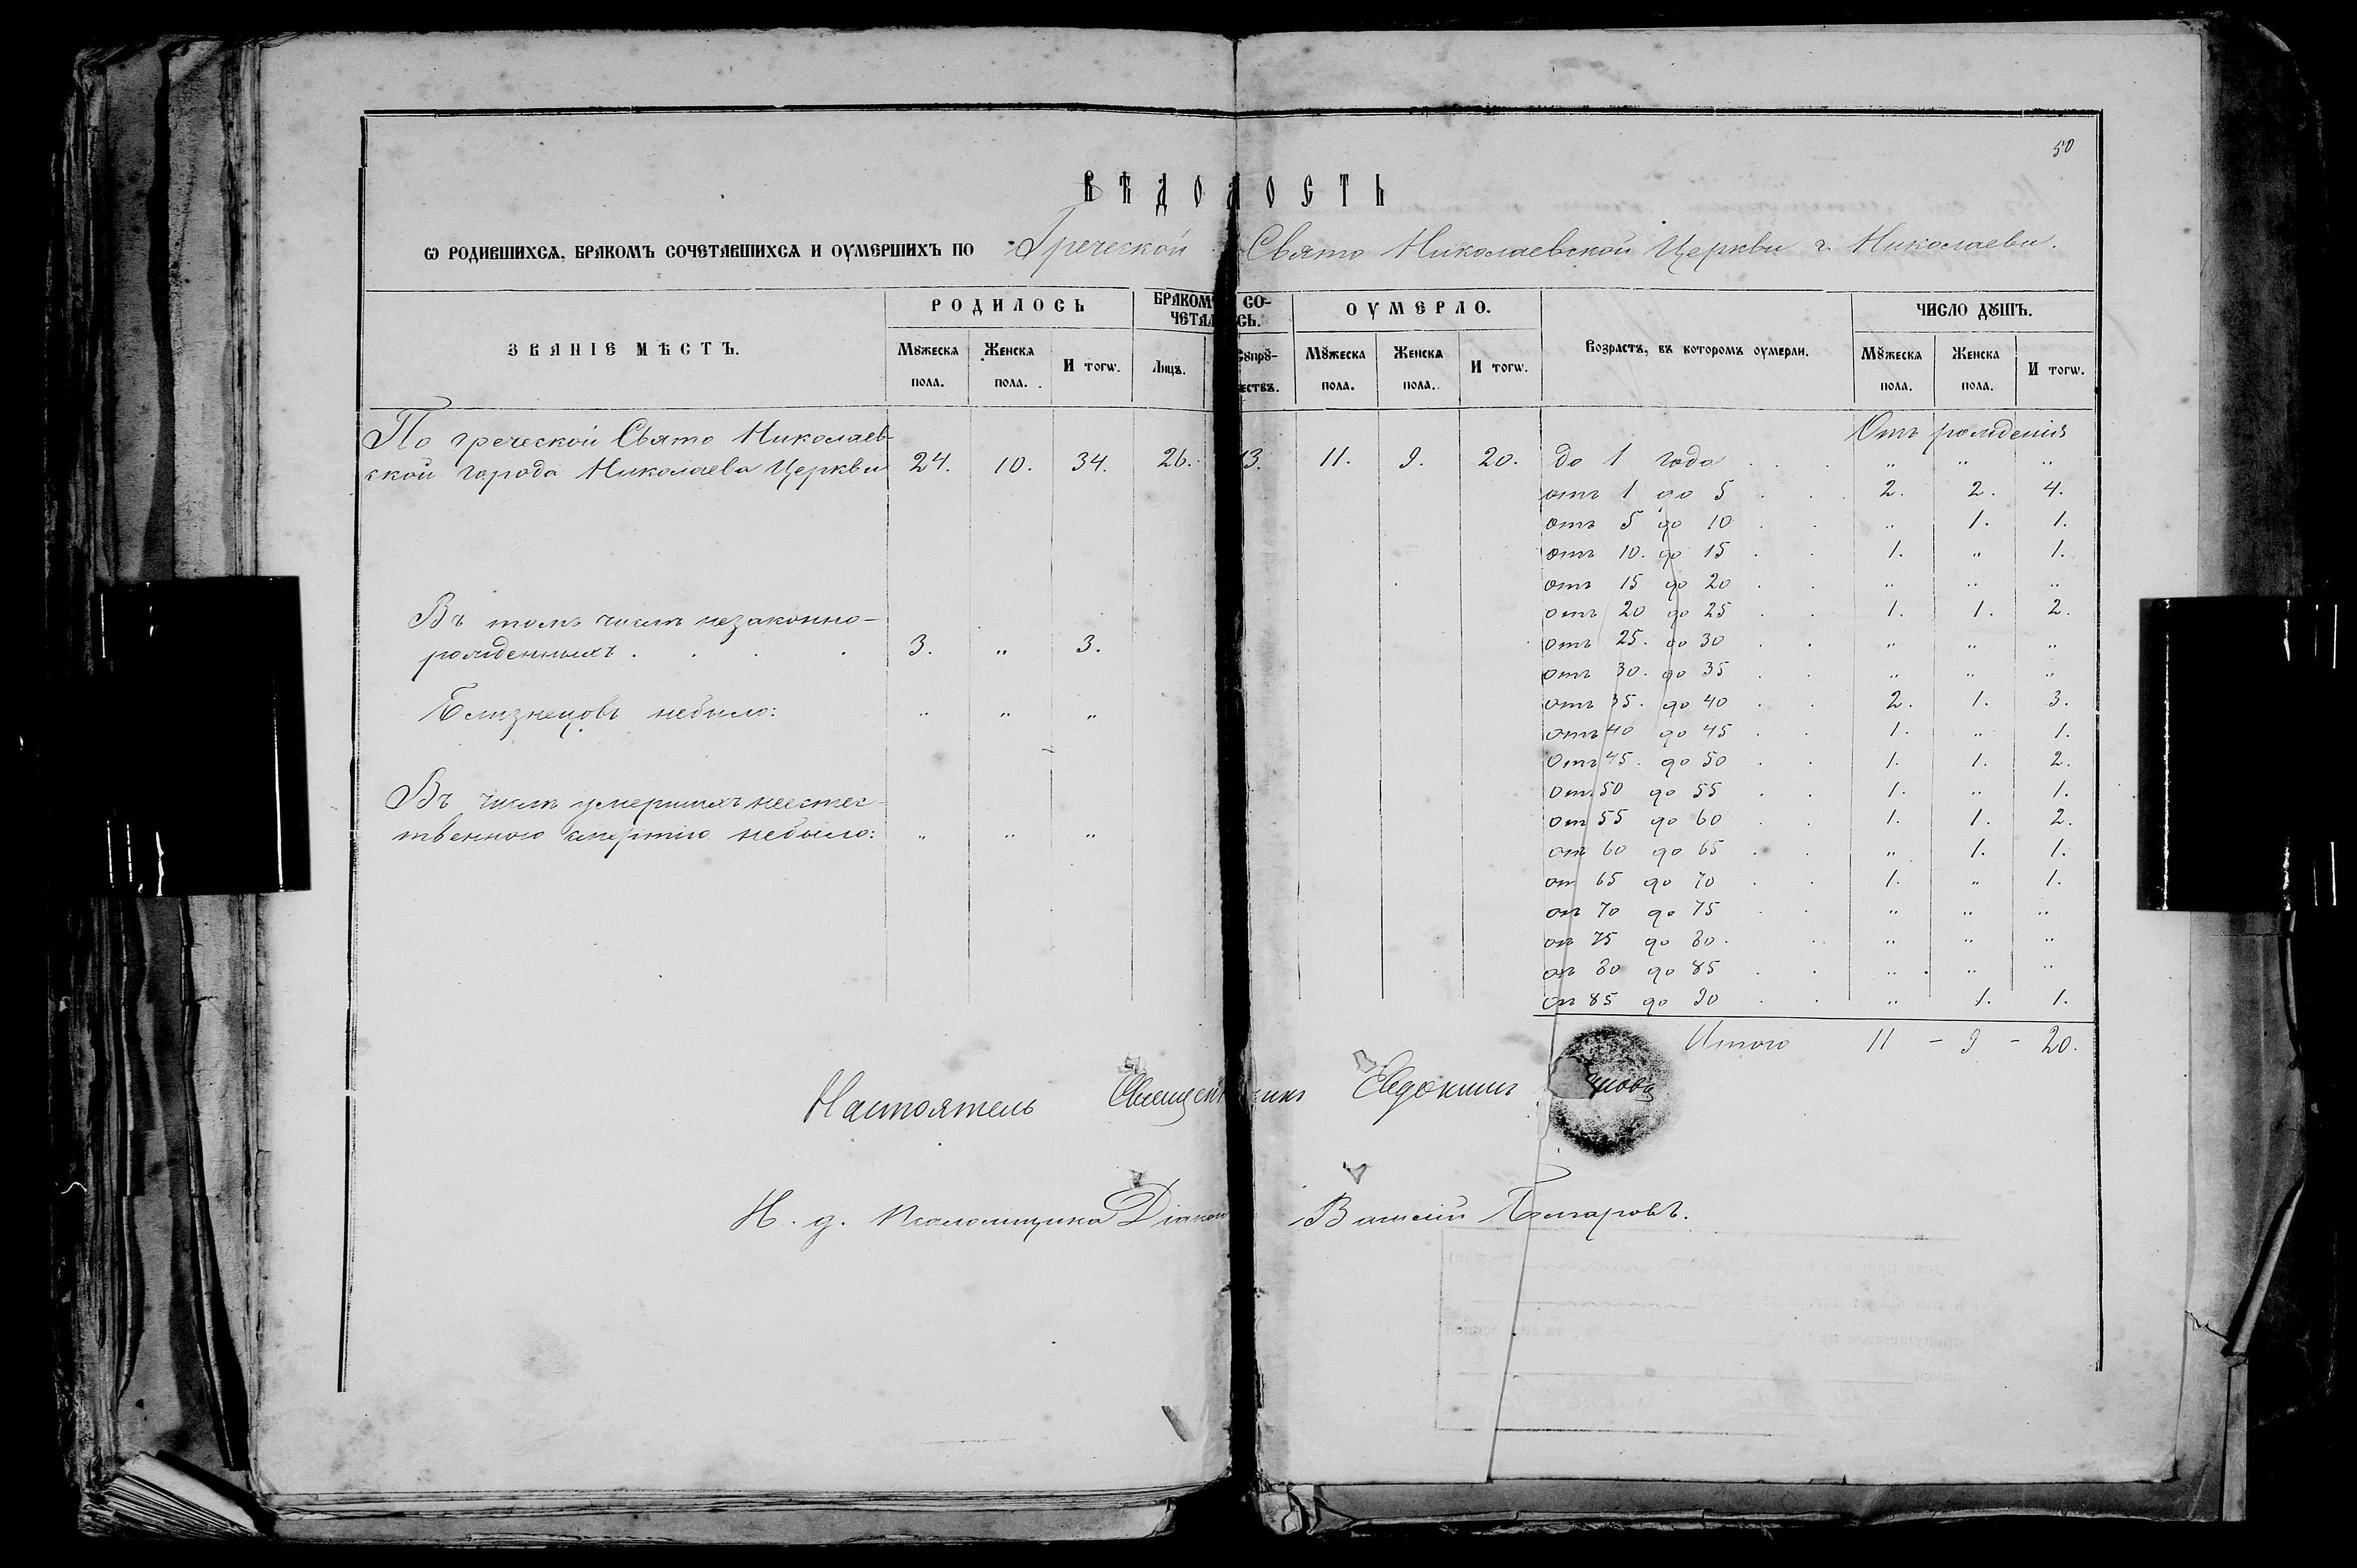 50
ВѢДОМОСТЬ
Ѡ РОДИВШИХСѦ, БРАКОМЪ СОЧЕТАВШИХСѦ И ОУМЕРШИХЪ ПО Греческой Свято Николаевской Церкви г. Николаева.
ЗВАНІЕ МѢСТЪ. РОДИЛОСЬ БРАКОМЪ СО- ОУМЕРЛО. Возрастъ, въ которомъ оумерли. ЧИСЛО ДꙊШЪ.
ЧЕТАЛОСЬ.
Мꙋжеска Женска И тогѡ. Лицъ. Сꙋпрꙋ- Мꙋжеска Женска И тогѡ. Мꙋжеска Женска И тогѡ.
пола. пола. жествъ. пола. пола. пола. пола.
По греческой Свято Николаев- Отъ рожденія
ской города Николаева Церкви 24. 10. 34. 26. 13. 11. 9. 20. до 1 года . . . „ „ „
отъ 1 до 5 . . 2. 2. 4.
отъ 5 до 10 . . „ 1. 1.
отъ 10. до 15 . . 1. „ 1.
отъ 15 до 20 . . „ „ „
отъ 20 до 25 . . 1. 1. 2.
Въ томъ числѣ незаконно-
рожденныхъ . . . . 3. „ 3. отъ 25. до 30 . . „ „ „
отъ 30. до 35 . . „ „ „
Близнецовъ небыло: „ „ „ отъ 35. до 40 . . 2. 1. 3.
отъ 40 до 45 . . 1. „ 1.
Отъ 45. до 50 . . 1. 1. 2.
Въ числѣ умершихъ неестес- от. 50 до 55 . . 1. „ 1.
твенною смертію небыло: „ „ „ от 55 до 60 . . 1. 1. 2.
от 60 до 65 . . „ 1. 1.
от 65 до 70 . . 1. „ 1.
от 70 до 75 . . „ „ „
от 75 до 80 . . „ „ „
от 80 до 85 . . „ „ „
от 85 до 90 . . „ 1. 1.
Итого 11 – 9 – 20.
Настоятель Священникъ Евдокимъ
И. д. Псаломщика Діаконъ Василій